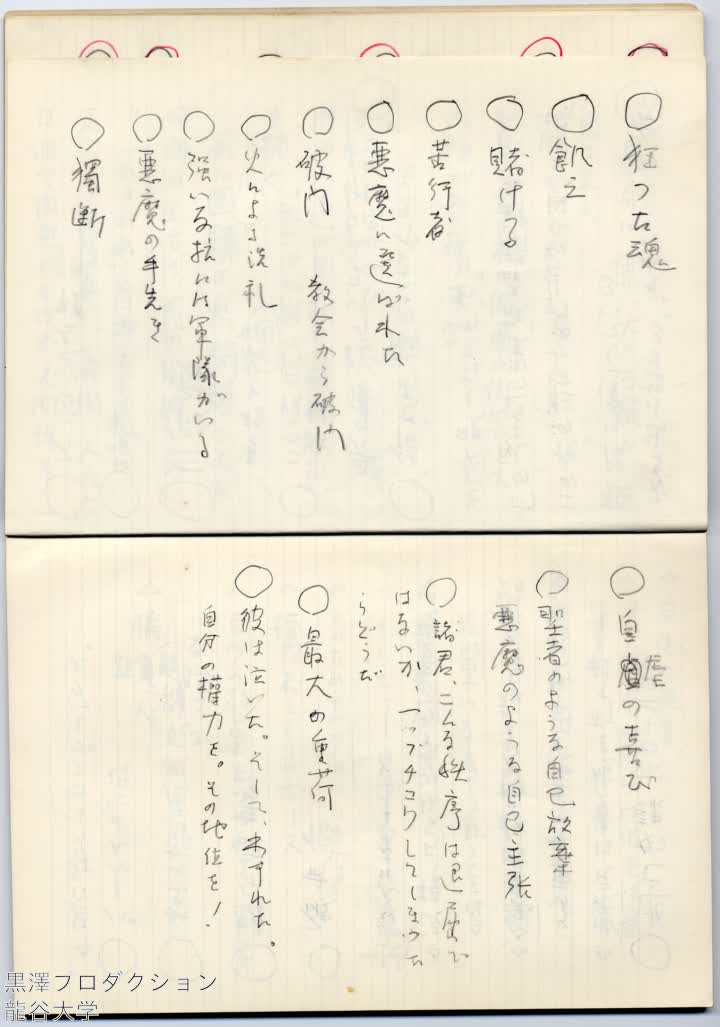 ○ 狂つた魂
○ 飢え
○ 賭ける
○ 苦行者
○ 悪魔に選ばれた
○ 破門 教会から破門
○ 火による洗礼
○ 強い反抗には軍隊がいる
○ 悪魔の手先き
○ 獨断
○ 自虐の喜び
○ 聖者のような自己放棄
悪魔のような自己主張
○ 諸君、こんな秩序は退屈で
はないか、一つブチコワしてしまつた
らどうだ
○ 最大の重荷
○ 彼は泣いた。そして、忘れた。
自分の權力を。その地位を!
黒澤プロダクション
龍谷大学